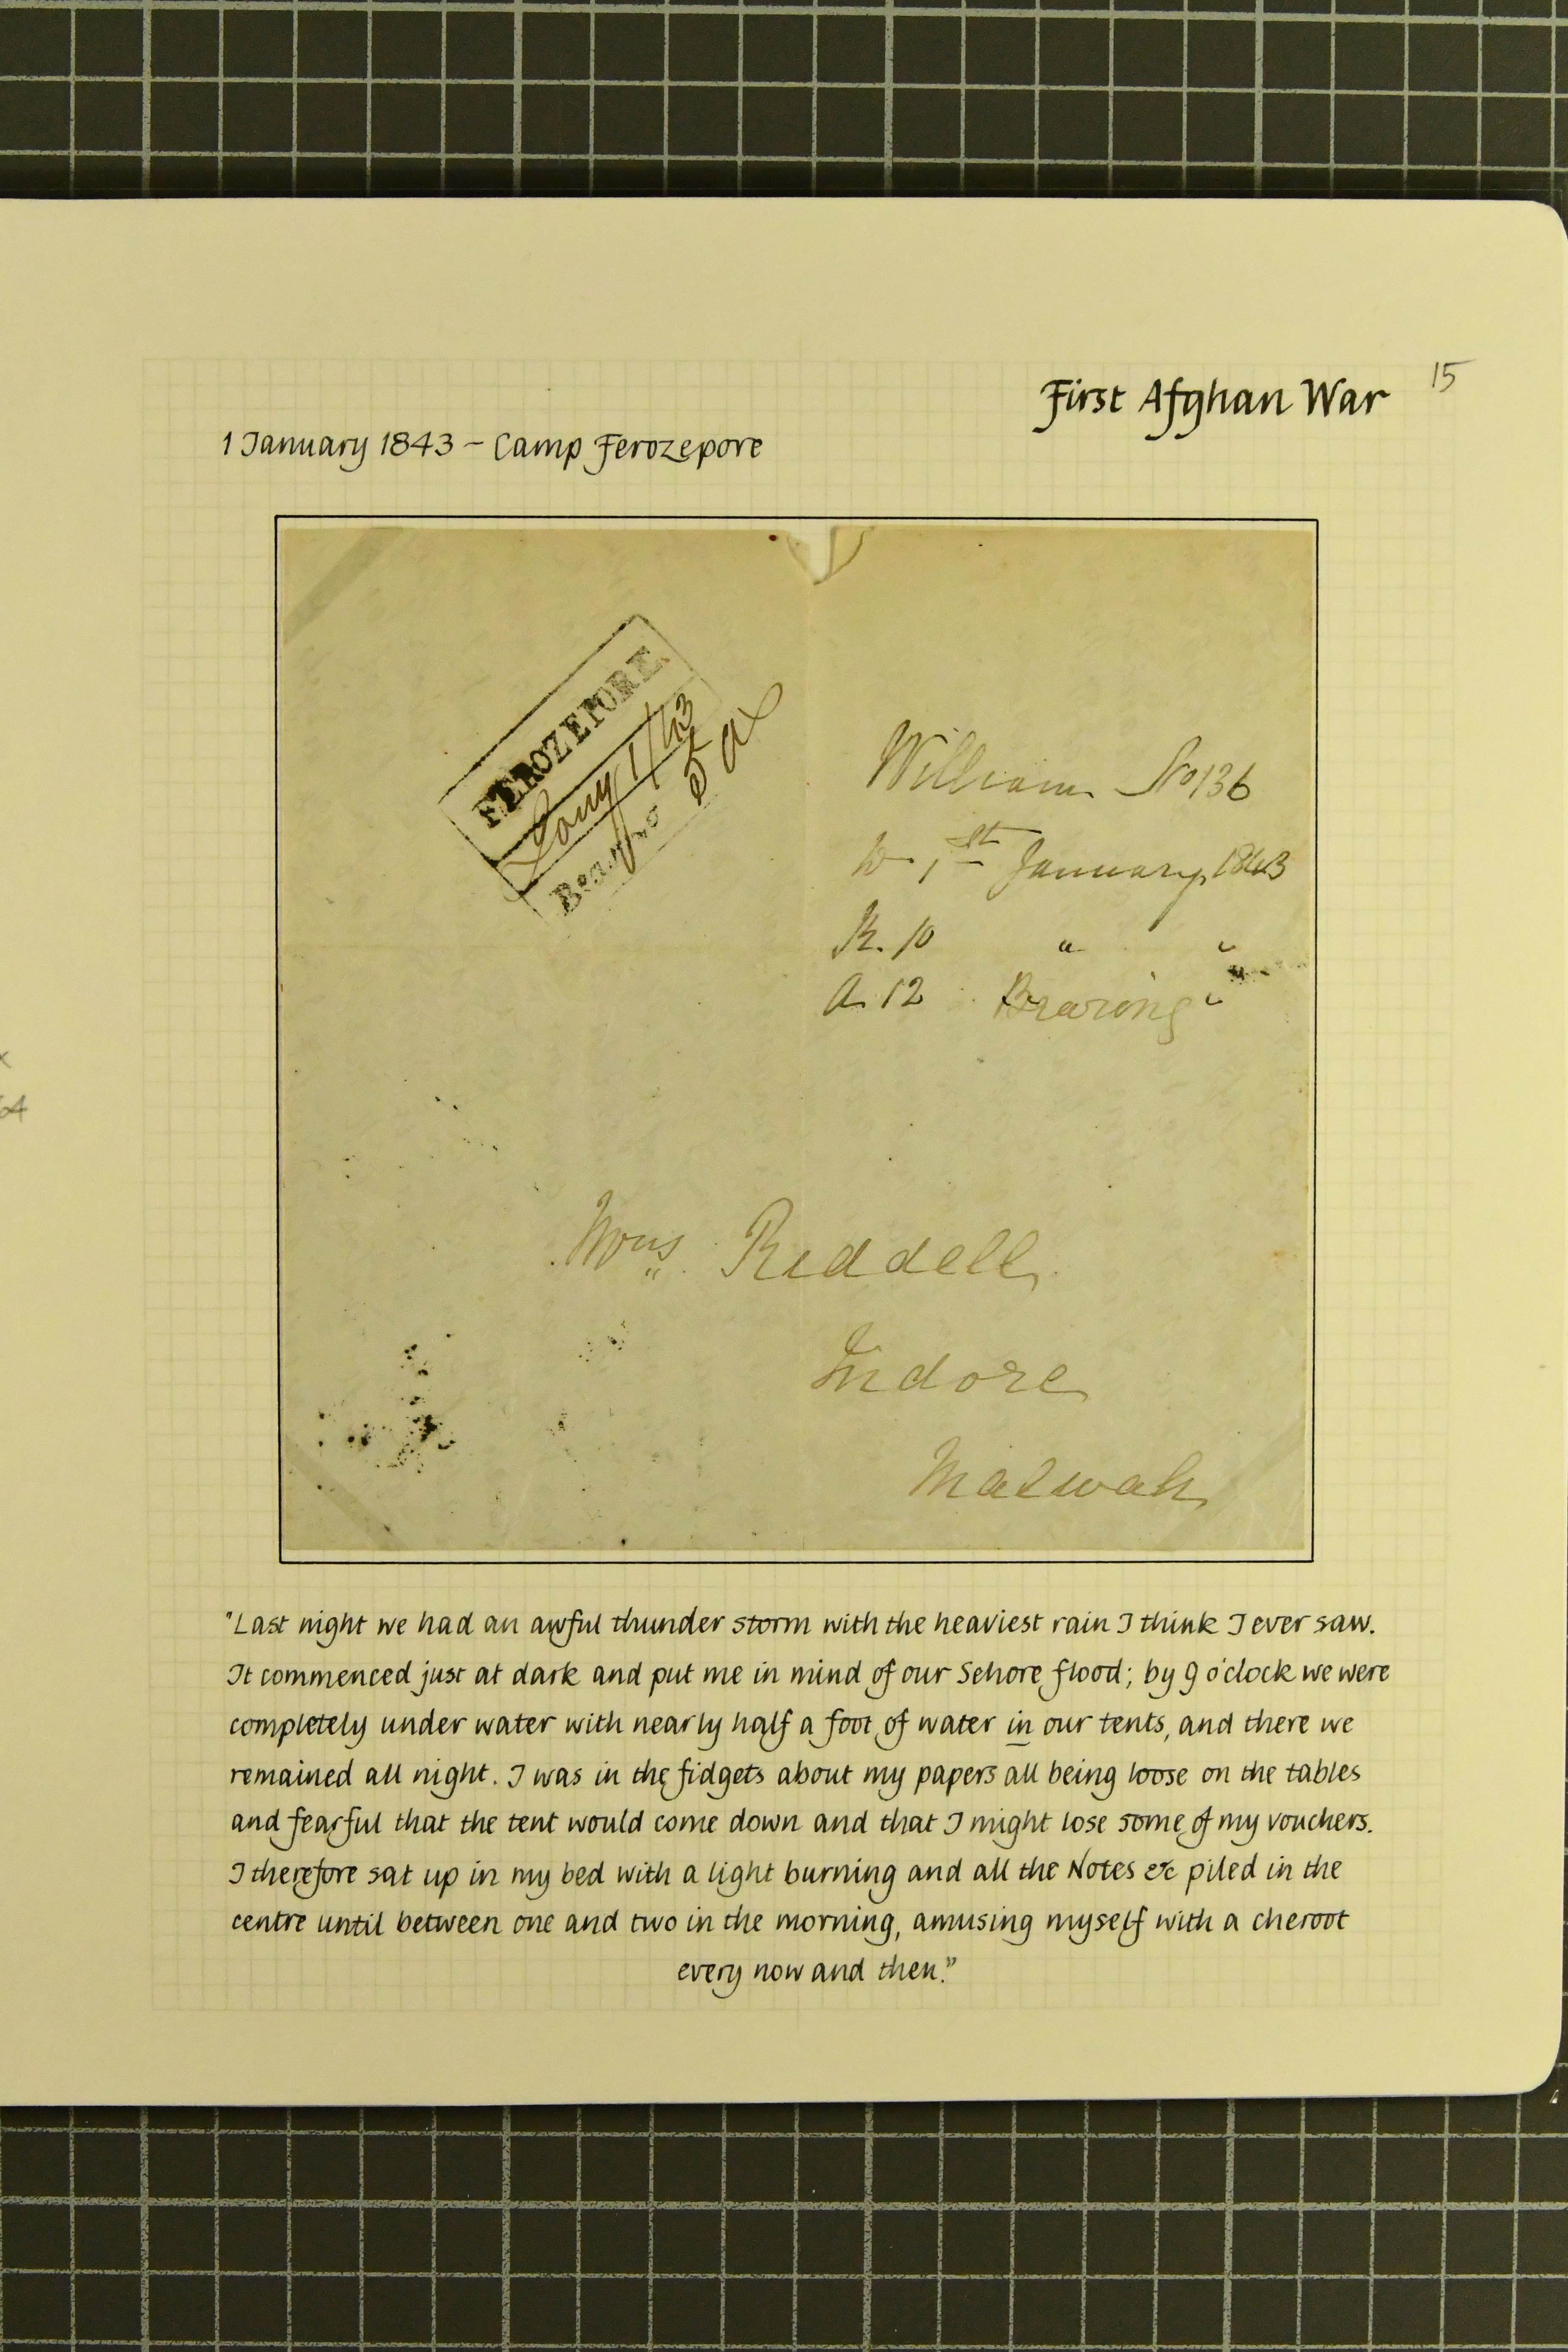 15
First Afghan War
1 January 1843 – Camp Ferozepore
FEROZEPORE
Jany 1/43
Bearing
William No 136
1st January 1843
R. 10 "
A. 12 Bearing
Mrs Riddell
Indore
Malwah
"Last night we had an awful thunder storm with the heaviest rain I think I ever saw.
It commenced just at dark and put me in mind of our Sehore flood; by 9 o'clock we were
completely under water with nearly half a foot of water in our tents, and there we
remained all night. I was in the fidgets about my papers all being loose on the tables
and fearful that the tent would come down and that I might lose some of my vouchers.
I therefore sat up in my bed with a light burning and all the Notes &c piled in the
centre until between one and two in the morning, amusing myself with a cheroot
every now and then."